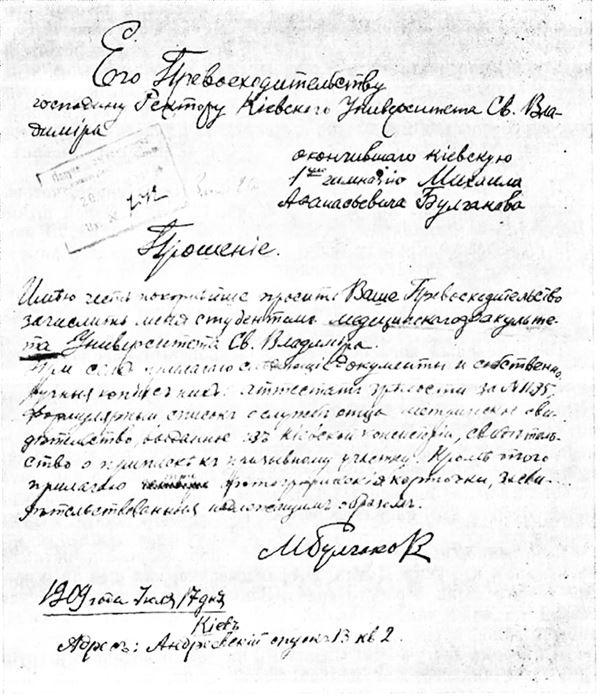 Его Превосходительству
господину Ректору Кіевского Университета Св. Вла-
диміра
окончившаго Кіевскую
1ую гимназію Михаила
Афанасьевича Булгакова
Прошеніе.
Имѣю честь покорнѣйше просить Ваше Превосходительство
зачислить меня студентомъ медицинскаго факульте-
та Университета Св. Владиміра.
При семъ прилагаю слѣдующіе документы и собственно-
ручныя копіи съ нихъ: аттестатъ зрѣлости за №1135
формулярный списокъ о службѣ отца, метрическое сви-
дѣтельство, выданное изъ Кіевской консисторіи, свидѣтель-
ство о припискѣ къ призывному участку. Кромѣ того
прилагаю фотографическія карточки, засви-
дѣтельствованныя надлежащимъ образомъ.
МБулгаковъ
1909 года Іюля 17 дня
Кіевъ
Адресъ: Андреевскій спускъ 13 кв 2.